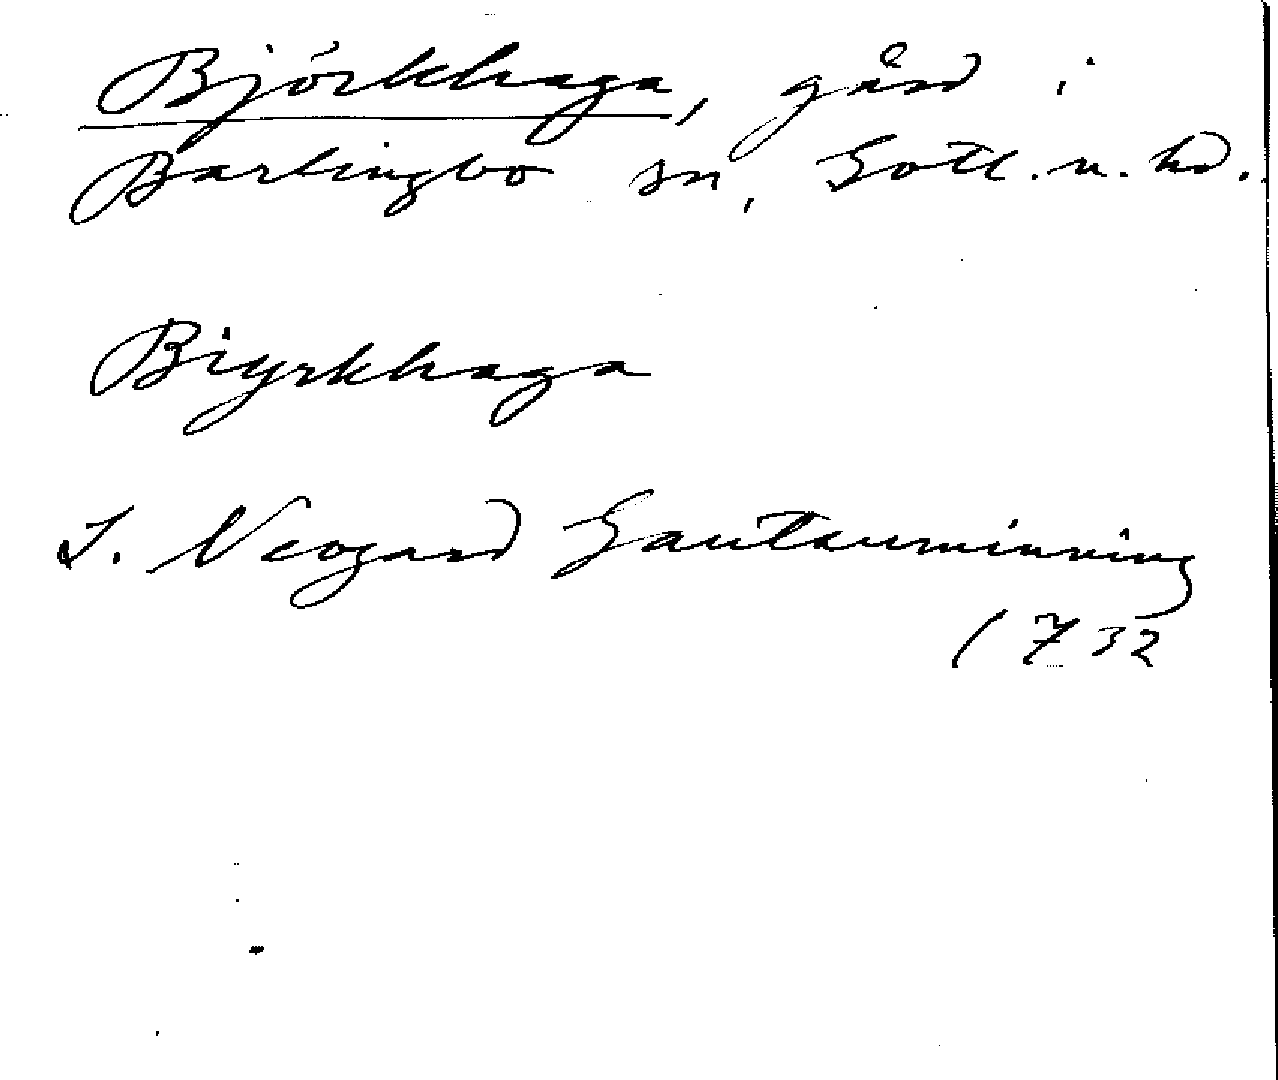 Björkhaga, gård i
Barlingbo sn, Gotl. n. hd.
Biyrkhaga
J. Neogard Gautauminning
1732